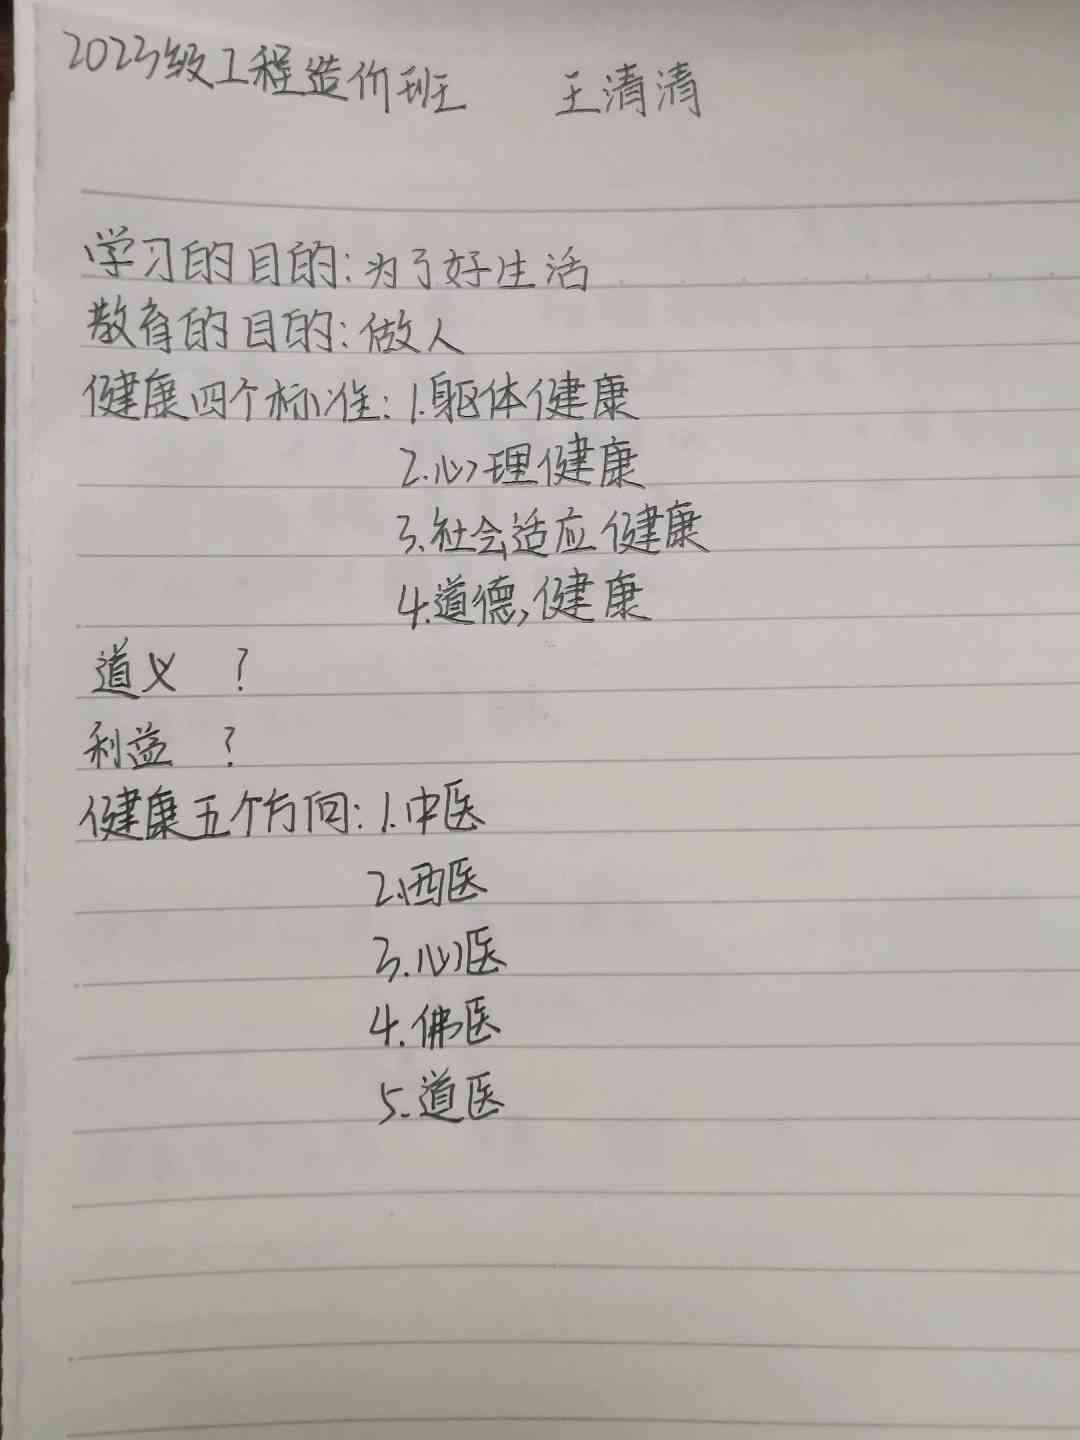 2023级工程造价班 王清清
学习的目的:为了好生活
教育的目的:做人
健康四个标准:1.躯体健康
2.心理健康
3.社会适应健康
4.道德,健康
道义 ?
利益 ?
健康五个方向:1.中医
2.西医
3.心医
4.佛医
5.道医